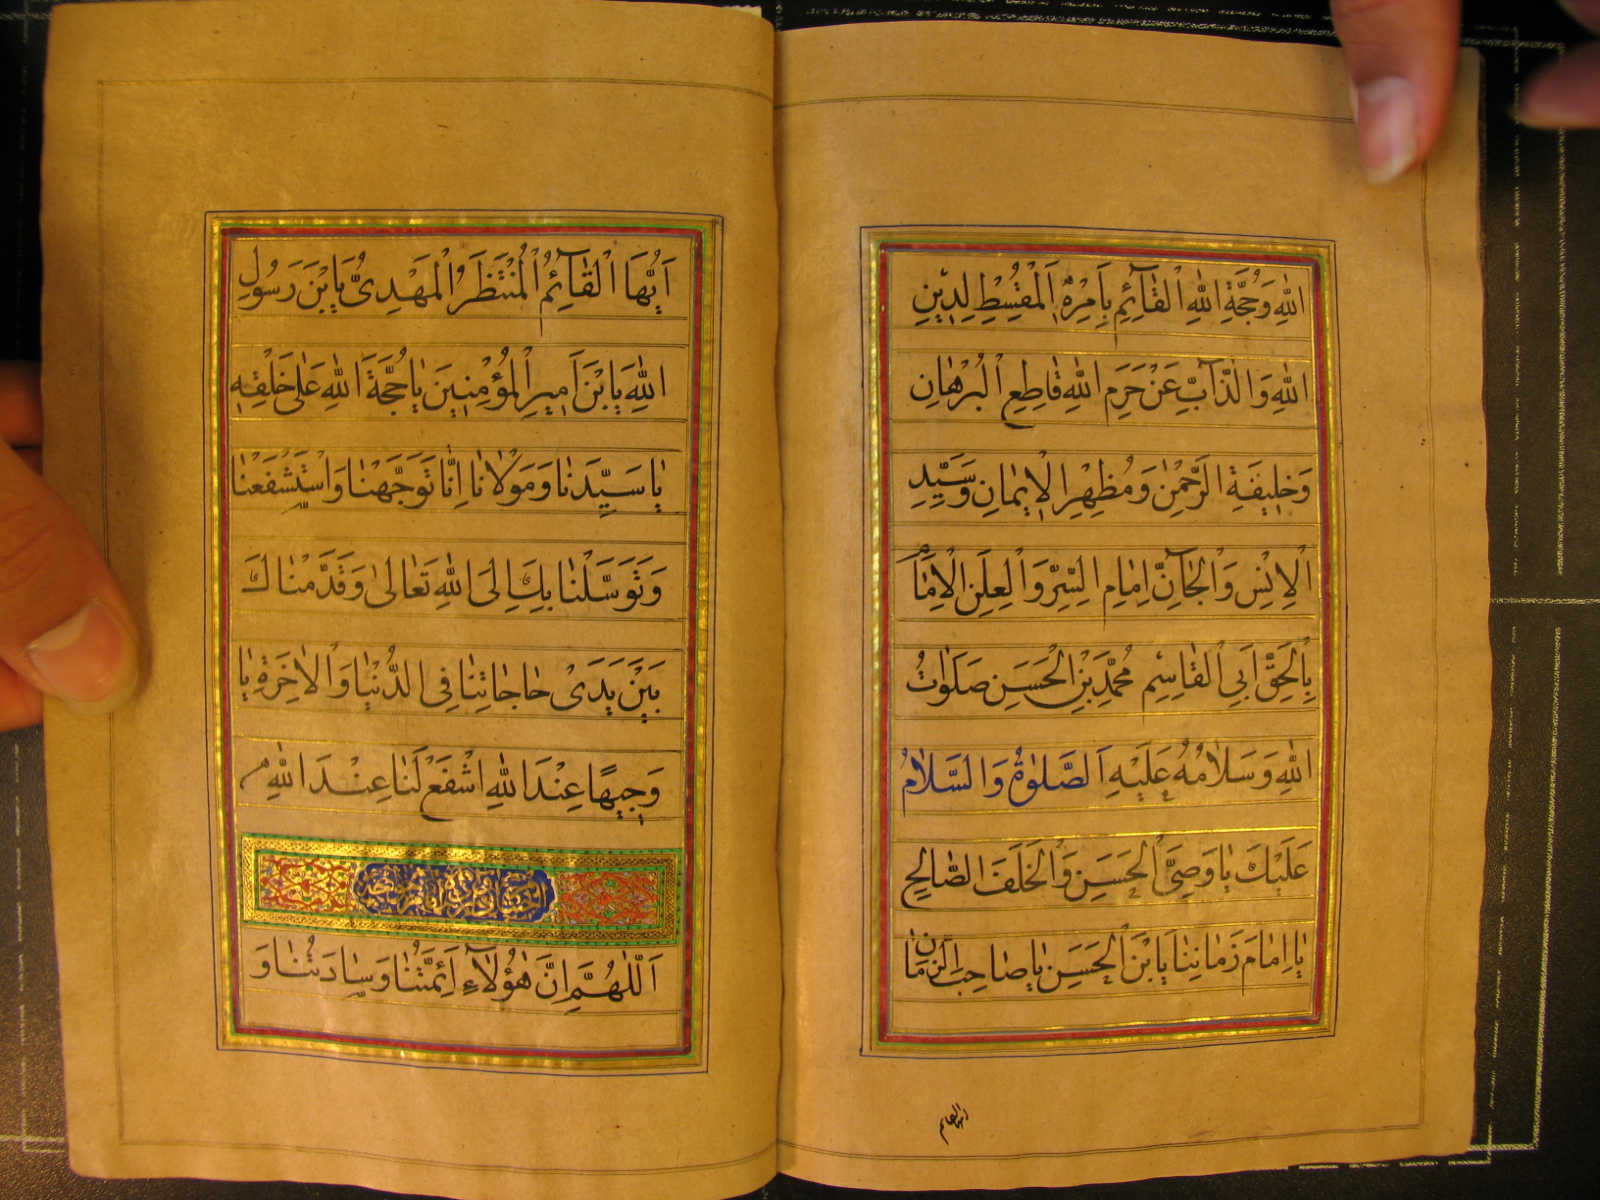 اللّٰهِ وَحُجَّةِ اللّٰهِ الْقٰآئِمِ بِاَمْرِهِ الْمُقْسِطِ لِدِيْنِ
اللّٰهِ وَالذَّآبِّ عَنْ حَرَمِ اللّٰهِ قٰاطِعِ الْبُرْهٰانِ
وَخَلِيفَةِ الرَّحْمٰنِ وَمُظْهِرِ الْاِيْمٰانِ وَسَيِّدِ
الْاِنْسِ وَالْجٰآنِّ اِمٰامِ السِّرِّ وَالْعَلَنِ الْاِمٰامِ
بِالْحَقِّ اَبِى الْقٰاسِمِ مُحَمَّدِ بْنِ الْحَسَنِ صَلَوٰاتُ
اللّٰهِ وَسَلٰامُهُ عَلَيْهِ اَلصَّلٰوةُ وَالسَّلٰامُ
عَلَيْكَ يٰا وَصِىَّ الْحَسَنِ وَالْخَلَفَ الصّٰالِحِ
يٰا اِمٰامَ زَمٰانِنٰا يٰا بْنَ الْحَسَنِ يٰا صٰاحِبَ الزَّمٰانِ
ايها القائم
اَيُّهَا الْقٰآئِمُ الْمُنْتَظَرُ الْمَهْدِىُّ يٰا بْنَ رَسُولِ
اللّٰهِ يٰا بْنَ اَمِيرِ الْمُؤْمِنِينَ يٰا حُجَّةَ اللّٰهِ عَلٰى خَلْقِهِ
يٰا سَيِّدَنٰا وَمَوْلٰانٰا اِنّٰا تَوَجَّهْنٰا وَاسْتَشْفَعْنٰا
وَتَوَسَّلْنٰا بِكَ اِلَى اللّٰهِ تَعٰالٰى وَقَدَّمْنٰاكَ
بَيْنَ يَدَىْ حٰاجٰاتِنٰا فِى الدُّنْيٰا وَالْاٰخِرَةِ يٰا
وَجِيهًا عِنْدَ اللّٰهِ اشْفَعْ لَنٰا عِنْدَ اللّٰهِ
اَللّٰهُمَّ اِنَّ هٰؤُلٰآءِ اَئِمَّتُنٰا وَسٰادَتُنٰا وَ